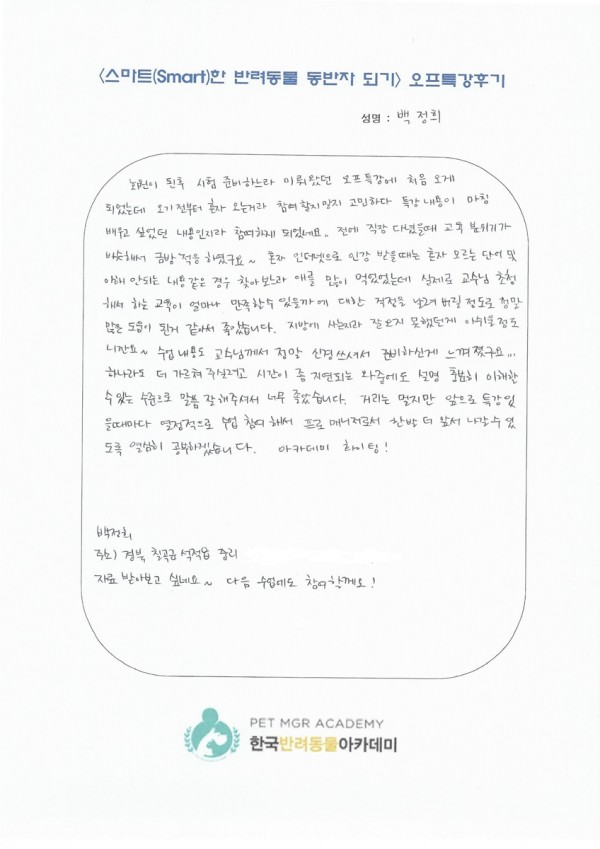 <스마트(Smart)한 반려동물 동반자 되기> 오프특강후기
성명 : 백정희
회원이 된후 시험 준비하느라 미뤄왔던 오프특강에 처음 오게
되었는데 오기전부터 혼자 오는거라 참여할지말지 고민하다 특강내용이 마침
배우고 싶었던 내용인지라 참여하게 되었네요.. 전에 직장 다녔을때 교육 분위기가
비슷해서 금방 적응 하였구요~ 혼자 인터넷으로 인강 받을때는 혼자 모르는 단어 및
이해 안되는 내용같은 경우 찾아보느라 애를 많이 먹었었는데 실제로 교수님 초청
해서 하는 교육이 얼마나 만족할수 있을까에 대한 걱정을 날려 버릴 정도로 정말
많은 도움이 된거 같아서 좋았습니다. 지방에 사는지라 잘 오지 못했던게 아쉬울 정도
니깐요~ 수업 내용도 교수님께서 정말 신경 쓰셔서 준비하신게 느껴졌구요...
하나라도 더 가르쳐 주실려고 시간이 좀 지연되는 와중에도 설명 충분히 이해할
수 있는 수준으로 말씀 잘 해주셔서 너무 좋았습니다. 거리는 멀지만 앞으로 특강 있
을때마다 열정적으로 수업 참여 해서 프로 매니저로서 한발 더 앞서 나갈수 있
도록 열심히 공부하겠습니다. 아카데미 화이팅!
백정희
주소) 경북 칠곡군 석적읍 중리
자료 받아보고 싶네요~ 다음 수업에도 참여할께요!
PET MGR ACADEMY
한국반려동물아카데미